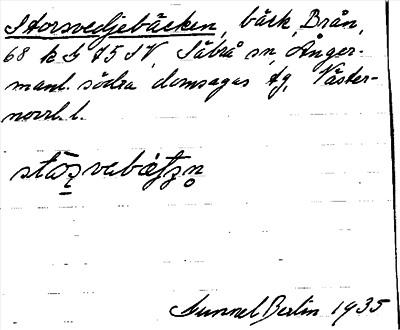 Storsvedjebäcken, bäck, Brån,
68 k S 75 SV, Säbrå sn, Ånger-
manl. södra domsagas tg, Väster-
norrl. l.
Gunnel Berlin 1935